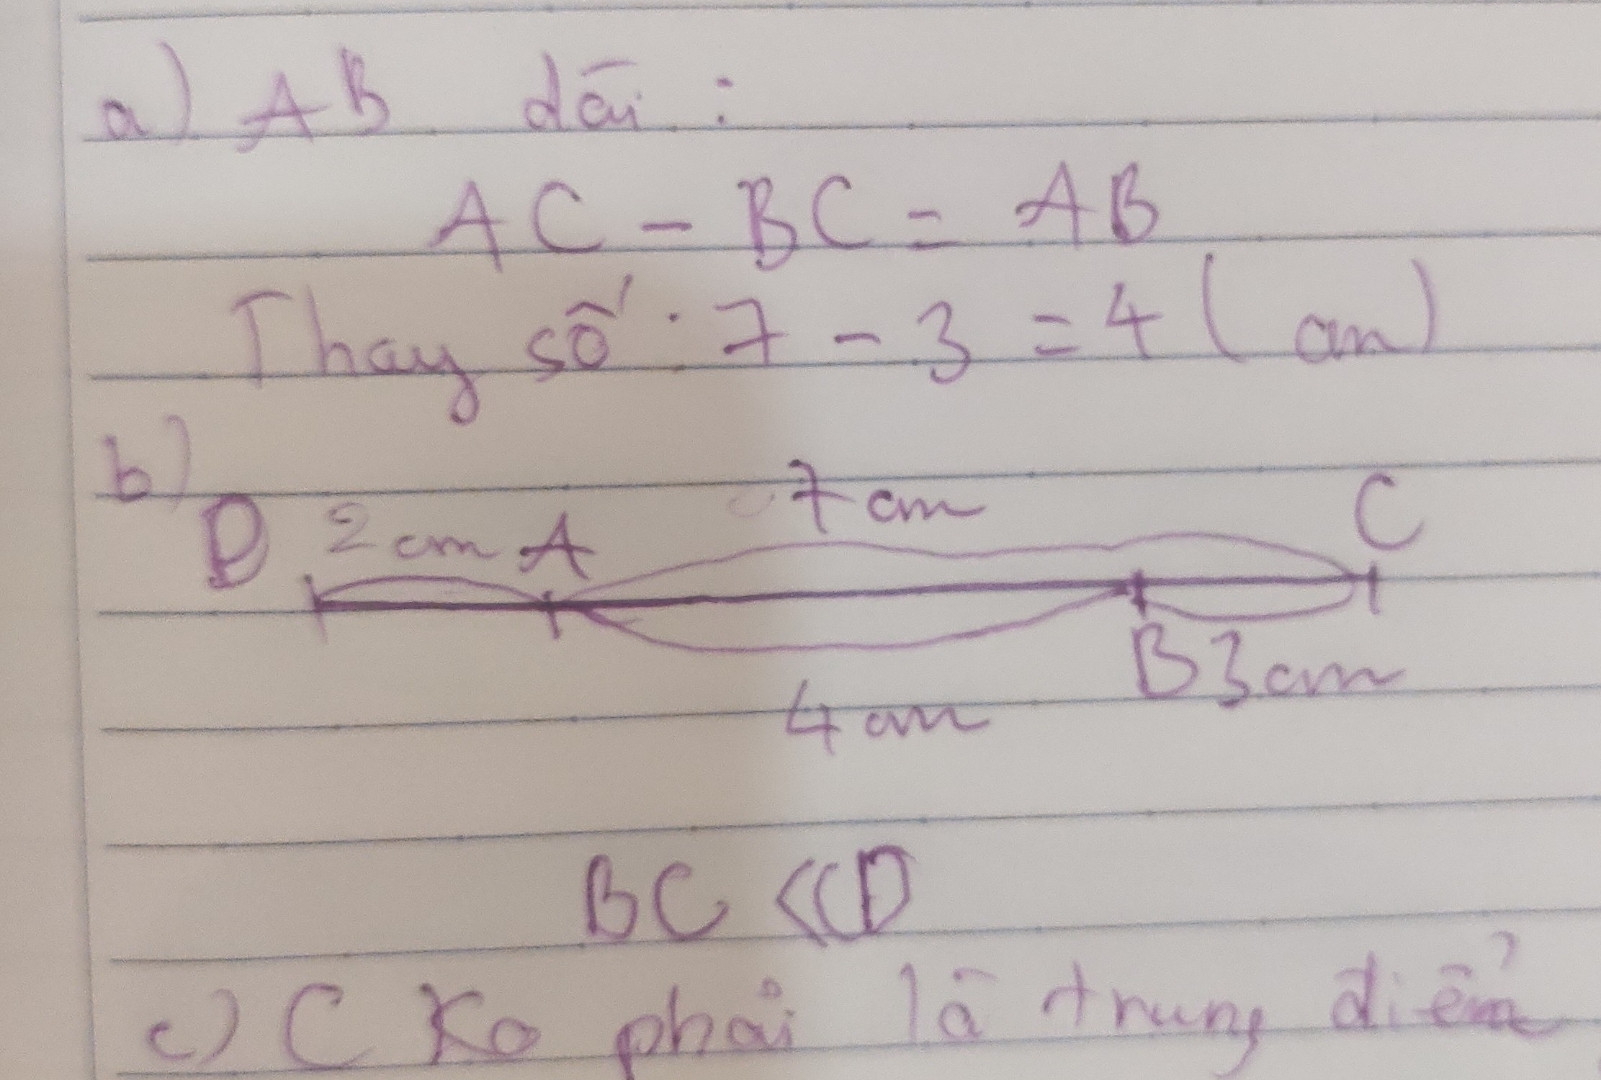 a) AB dài :
AC - BC = AB
Thay số : 7 - 3 = 4 ( cm )
b)
7 cm C
D 2 cm A
B 3 cm
4 cm
BC < CD
c) C Ko phải là trung điểm